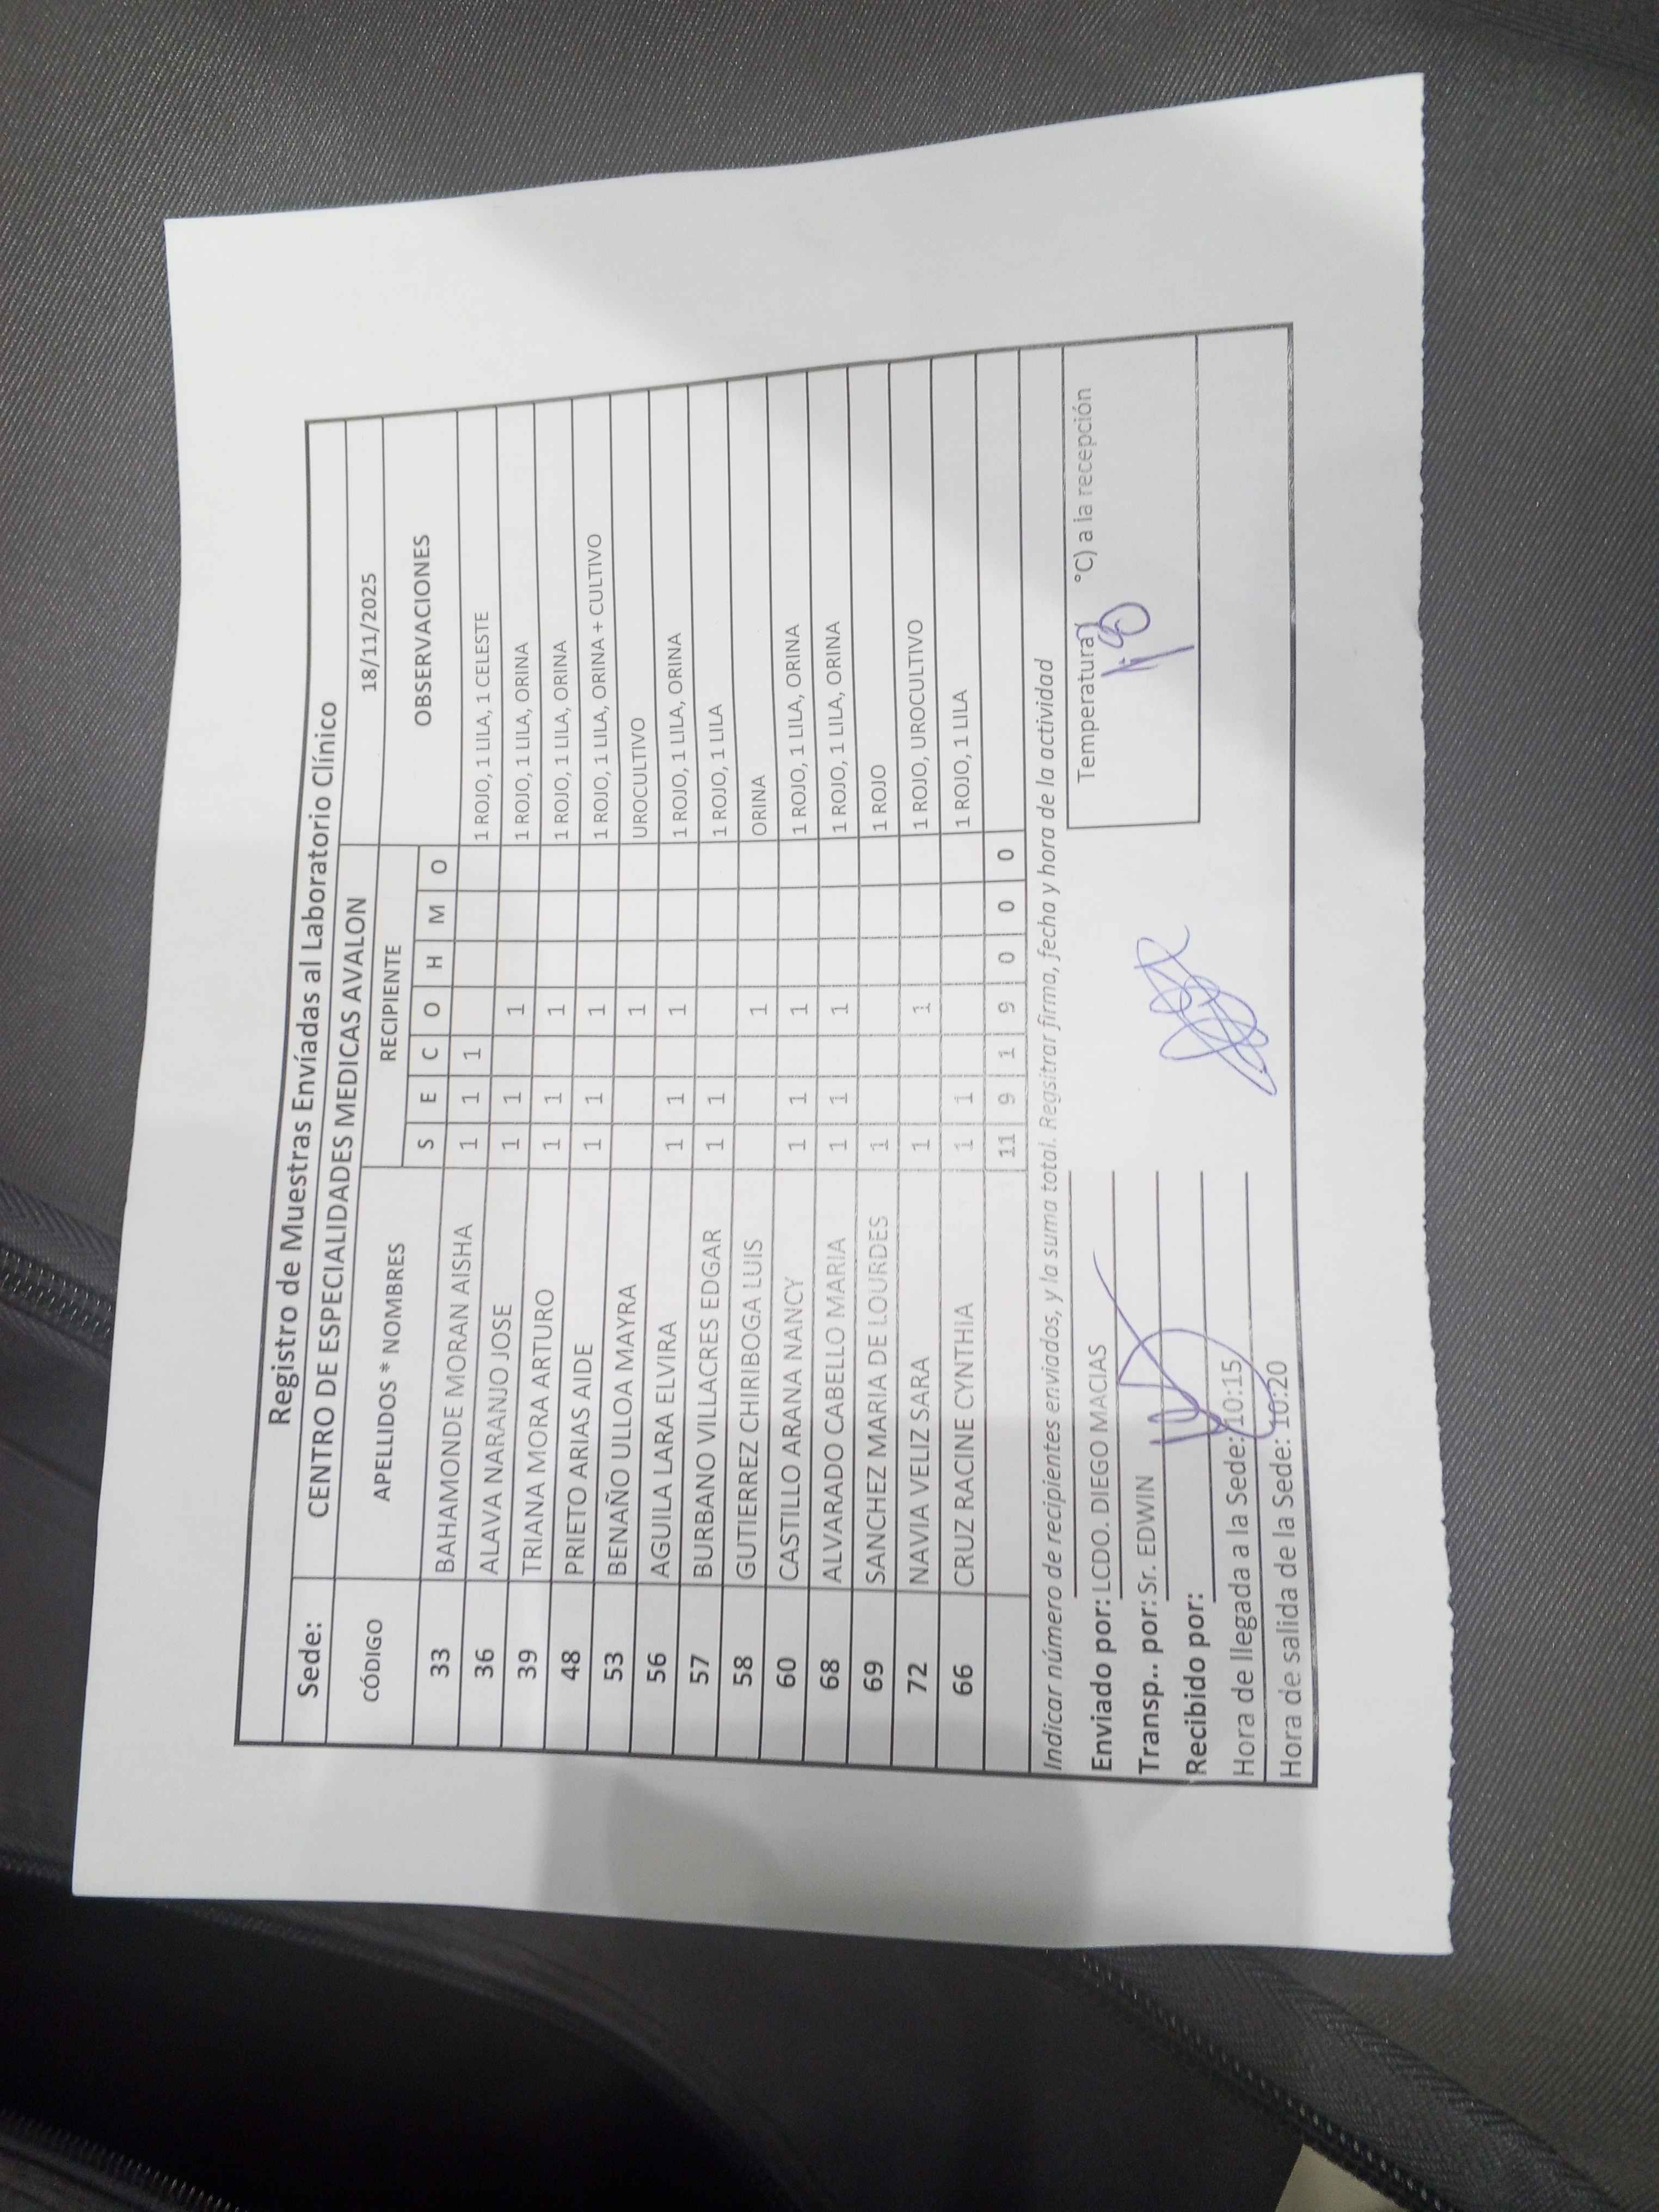 Registro de Muestras Envíadas al Laboratorio Clínico
Sede: CENTRO DE ESPECIALIDADES MEDICAS AVALON
CÓDIGO APELLIDOS * NOMBRES RECIPIENTE 18/11/2025
S E C O H M O OBSERVACIONES
33 BAHAMONDE MORAN AISHA 1 1 1 1 ROJO, 1 LILA, 1 CELESTE
36 ALAVA NARANJO JOSE 1 1 1 1 ROJO, 1 LILA, ORINA
39 TRIANA MORA ARTURO 1 1 1 1 ROJO, 1 LILA, ORINA
48 PRIETO ARIAS AIDE 1 1 1 1 ROJO, 1 LILA, ORINA + CULTIVO
53 BENAÑO ULLOA MAYRA 1 UROCULTIVO
56 AGUILA LARA ELVIRA 1 1 1 1 ROJO, 1 LILA, ORINA
57 BURBANO VILLACRES EDGAR 1 1 1 ROJO, 1 LILA
58 GUTIERREZ CHIRIBOGA LUIS 1 ORINA
60 CASTILLO ARANA NANCY 1 1 1 1 ROJO, 1 LILA, ORINA
68 ALVARADO CABELLO MARIA 1 1 1 1 ROJO, 1 LILA, ORINA
69 SANCHEZ MARIA DE LOURDES 1 1 ROJO
72 NAVIA VELIZ SARA 1 1 1 ROJO, UROCULTIVO
66 CRUZ RACINE CYNTHIA 1 1 1 ROJO, 1 LILA
11 9 1 9 0 0 0
Indicar número de recipientes enviados, y la suma total. Regsitrar firma, fecha y hora de la actividad
Enviado por: LCDO. DIEGO MACIAS Temperatura °C) a la recepción
Transp.. por: Sr. EDWIN
Recibido por:
Hora de llegada a la Sede: 10:15
Hora de salida de la Sede: 10:20